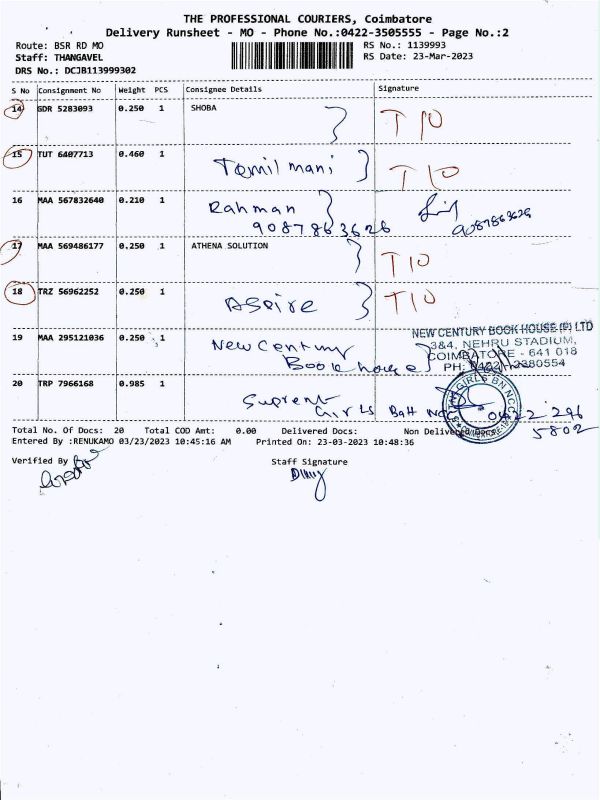 THE PROFESSIONAL COURIERS, Coimbatore
Delivery Runsheet - MO - Phone No.:0422-3505555 - Page No.:2
Route: BSR RD MO
RS No.: 1139993
Staff: THANGAVEL
RS Date: 23-Mar-2023
DRS No.: DCJB113999302
S No Consignment No Weight PCS Consignee Details Signature
14 GDR 5283093 0.250 1 SHOBA T10
15 TUT 6407713 0.460 1 Tamil mani T10
16 MAA 567832640 0.210 1 Rahman
9087863626 9087863626
17 MAA 569486177 0.250 1 ATHENA SOLUTION T10
18 TRZ 56962252 0.250 1 Aspire T10
19 MAA 295121036 0.250 1 New Century
Book house
NEW CENTURY BOOK HOUSE (P) LTD
3&4, NEHRU STADIUM,
COIMBATORE - 641 018
PH: 0422 - 2380554
20 TRP 7966168 0.985 1
Girls Batt NCC 0422 296
5802
GIRLS BN NCC
Total No. Of Docs: 20 Total COD Amt: 0.00 Delivered Docs: Non Delivered Docs:
Entered By :RENUKAMO 03/23/2023 10:45:16 AM Printed On: 23-03-2023 10:48:36
Verified By
Staff Signature